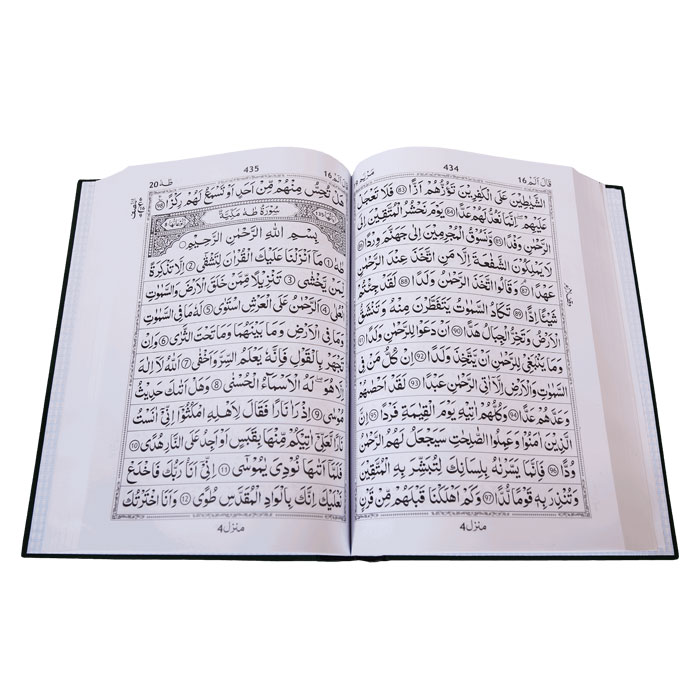 قَالَ اَلَمْ 16 434
الشَّيٰطِيْنَ عَلَى الْكٰفِرِيْنَ تَؤُزُّهُمْ اَزًّا ۙ﴿83﴾ فَلَا تَعْجَلْ
عَلَيْهِمْ ؕ اِنَّمَا نَعُدُّ لَهُمْ عَدًّا ۚ﴿84﴾ يَوْمَ نَحْشُرُ الْمُتَّقِيْنَ اِلَى
الرَّحْمٰنِ وَفْدًا ۙ﴿85﴾ وَّنَسُوْقُ الْمُجْرِمِيْنَ اِلٰى جَهَنَّمَ وِرْدًا ۘ﴿86﴾
لَا يَمْلِكُوْنَ الشَّفٰعَةَ اِلَّا مَنِ اتَّخَذَ عِنْدَ الرَّحْمٰنِ
عَهْدًا ۘ﴿87﴾ وَقَالُوا اتَّخَذَ الرَّحْمٰنُ وَلَدًا ؕ﴿88﴾ لَقَدْ جِئْتُمْ
شَيْئًا اِدًّا ۙ﴿89﴾ تَكَادُ السَّمٰوٰتُ يَتَفَطَّرْنَ مِنْهُ وَتَنْشَقُّ
الْاَرْضُ وَتَخِرُّ الْجِبَالُ هَدًّا ۙ﴿90﴾ اَنْ دَعَوْا لِلرَّحْمٰنِ وَلَدًا ۚ﴿91﴾
وَمَا يَنْبَغِيْ لِلرَّحْمٰنِ اَنْ يَّتَّخِذَ وَلَدًا ؕ﴿92﴾ اِنْ كُلُّ مَنْ فِي
السَّمٰوٰتِ وَالْاَرْضِ اِلَّاۤ اٰتِي الرَّحْمٰنِ عَبْدًا ؕ﴿93﴾ لَقَدْ اَحْصٰهُمْ
وَعَدَّهُمْ عَدًّا ؕ﴿94﴾ وَكُلُّهُمْ اٰتِيْهِ يَوْمَ الْقِيٰمَةِ فَرْدًا ﴿95﴾ اِنَّ
الَّذِيْنَ اٰمَنُوْا وَعَمِلُوا الصّٰلِحٰتِ سَيَجْعَلُ لَهُمُ الرَّحْمٰنُ
وُدًّا ﴿96﴾ فَاِنَّمَا يَسَّرْنٰهُ بِلِسَانِكَ لِتُبَشِّرَ بِهِ الْمُتَّقِيْنَ
وَتُنْذِرَ بِهٖ قَوْمًا لُّدًّا ﴿97﴾ وَكَمْ اَهْلَكْنَا قَبْلَهُمْ مِّنْ قَرْنٍ ؕ
منزل 4
435 طٰهٰ 20
هَلْ تُحِسُّ مِنْهُمْ مِّنْ اَحَدٍ اَوْ تَسْمَعُ لَهُمْ رِكْزًا ﴿98﴾
سُوْرَةُ طٰهٰ مَكِّيَّةٌ
بِسْمِ اللّٰهِ الرَّحْمٰنِ الرَّحِيْمِ
طٰهٰ ۚ﴿1﴾ مَاۤ اَنْزَلْنَا عَلَيْكَ الْقُرْاٰنَ لِتَشْقٰۤى ۙ﴿2﴾ اِلَّا تَذْكِرَةً
لِّمَنْ يَّخْشٰى ۙ﴿3﴾ تَنْزِيْلًا مِّمَّنْ خَلَقَ الْاَرْضَ وَالسَّمٰوٰتِ
الْعُلٰى ؕ﴿4﴾ اَلرَّحْمٰنُ عَلَى الْعَرْشِ اسْتَوٰى ﴿5﴾ لَهٗ مَا فِي السَّمٰوٰتِ
وَمَا فِي الْاَرْضِ وَمَا بَيْنَهُمَا وَمَا تَحْتَ الثَّرٰى ﴿6﴾ وَاِنْ
تَجْهَرْ بِالْقَوْلِ فَاِنَّهٗ يَعْلَمُ السِّرَّ وَاَخْفٰى ﴿7﴾ اَللّٰهُ لَاۤ اِلٰهَ
اِلَّا هُوَ ؕ لَهُ الْاَسْمَآءُ الْحُسْنٰى ﴿8﴾ وَهَلْ اَتٰىكَ حَدِيْثُ
مُوْسٰى ۘ﴿9﴾ اِذْ رَاٰ نَارًا فَقَالَ لِاَهْلِهِ امْكُثُوْۤا اِنِّيْۤ اٰنَسْتُ
نَارًا لَّعَلِّيْۤ اٰتِيْكُمْ مِّنْهَا بِقَبَسٍ اَوْ اَجِدُ عَلَى النَّارِ هُدًى ﴿10﴾
فَلَمَّاۤ اَتٰىهَا نُوْدِيَ يٰمُوْسٰى ؕ﴿11﴾ اِنِّيْۤ اَنَا رَبُّكَ فَاخْلَعْ
نَعْلَيْكَ ۚ اِنَّكَ بِالْوَادِ الْمُقَدَّسِ طُوًى ؕ﴿12﴾ وَاَنَا اخْتَرْتُكَ
منزل 4